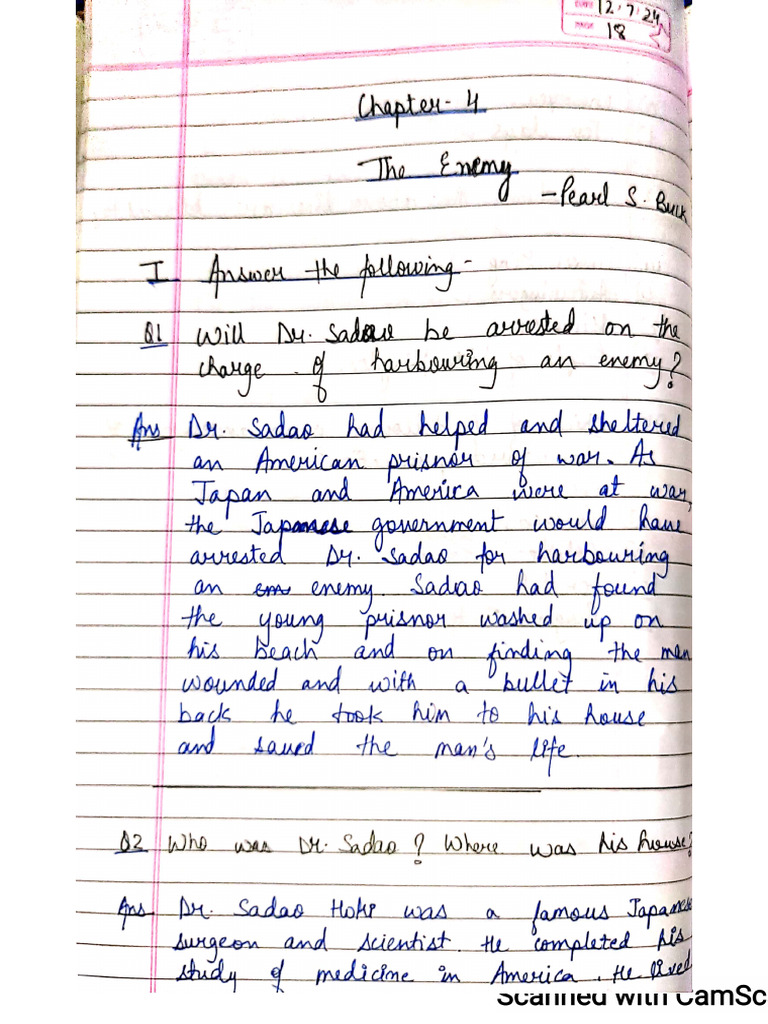 DATE 12.7.24
PAGE 18
Chapter- 4
The Enemy
-Pearl S. Buck
I Answer the following-
Q1 Will Dr. Sadao be arrested on the
charge of harbouring an enemy?
Ans Dr. Sadao had helped and sheltered
an American prisnor of war. As
Japan and America were at war,
the Japanese government would have
arrested Dr. Sadao for harbouring
an enemy. Sadao had found
the young prisnor washed up on
his beach and on finding the man
wounded and with a bullet in his
back he took him to his house
and saved the man's life.
Q2 Who was Dr. Sadao? Where was his house?
Ans Dr. Sadao Hoki was a famous Japanese
surgeon and scientist. He completed his
study of medicine in America. He lived
Scanned with CamSc